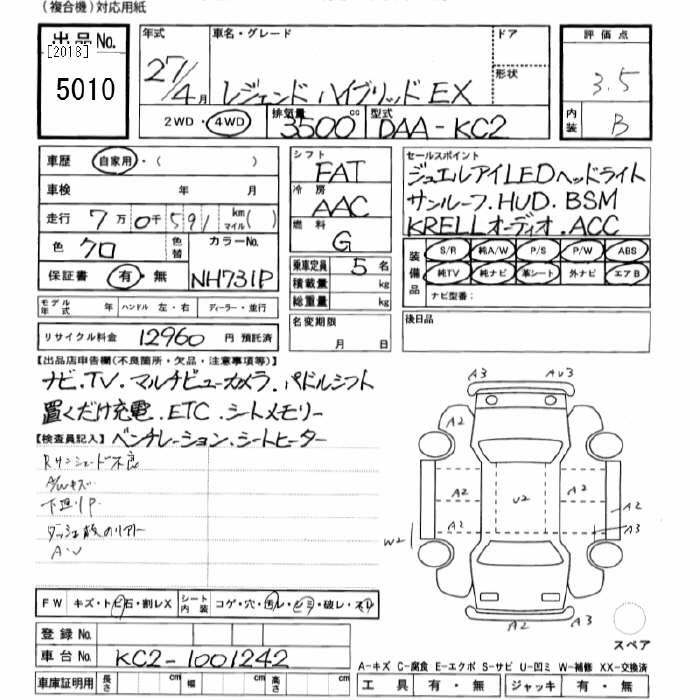 (複合機)対応用紙
出品No.
[2018]
5010
年式 27/4月
車名・グレード レジェンド ハイブリッド EX
ドア
形状
2WD・4WD
排気量 3500 cc
型式 DAA-KC2
評価点
3.5
内装 B
車歴 自家用・( )
車検 年 月
走行 7万0千591 km マイル( )
色 クロ 色替 カラーNo.
保証書 有・無 NH731P
モデル年式 年 ハンドル 左・右 ディーラー・並行
リサイクル料金 12960 円 預託済
シフト
FAT
冷房
AAC
燃料
G
乗車定員 5 名
積載量 kg
総重量 kg
名変期限
月 日
セールスポイント
ジュエルアイLEDヘッドライト
サンルーフ.HUD.BSM
KRELLオーディオ.ACC
装備品
S/R 純A/W P/S P/W ABS
純TV 純ナビ 革シート 外ナビ エアB
ナビ型番:
後日品
【出品店申告欄(不良箇所・欠品・注意事項等)】
ナビ.TV.マルチビューカメラ.パドルシフト
置くだけ充電.ETC.シートメモリー
【検査員記入】ベンチレーション.シートヒーター
Rサンシェード不良
A/Wキズ
下廻りP
A・U
A3 AU3
A2
A2 U2 A2
A2 A2
W2 A3
A2 A3
スペア
FW キズ・トビ石・割レX シート内装 コゲ・穴・汚レ・シミ・破レ・スリ
登録No.
車台No. KC2-1001242
車庫証明用 長さ cm 幅 cm 高さ cm
A-キズ C-腐食 E-エクボ S-サビ U-凹ミ W-補修 XX-交換済
工具 有・無 ジャッキ 有・無